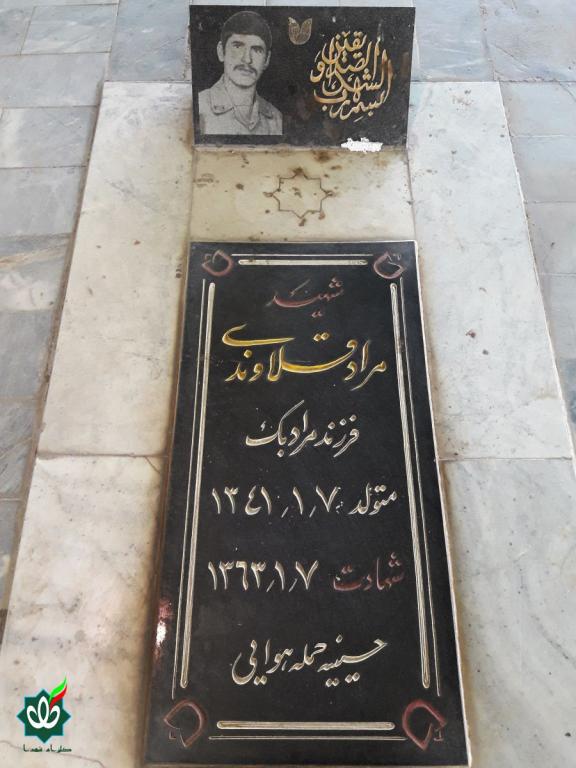 بسم رب الشهداء و الصدیقین
شهید
مراد قلاوندی
فرزند مرادبک
متولد ۱۳۴۱٫۱٫۷
شهادت ۱۳۶۳٫۱٫۷
حسینیه حمله هوایی
گلزار شهدا